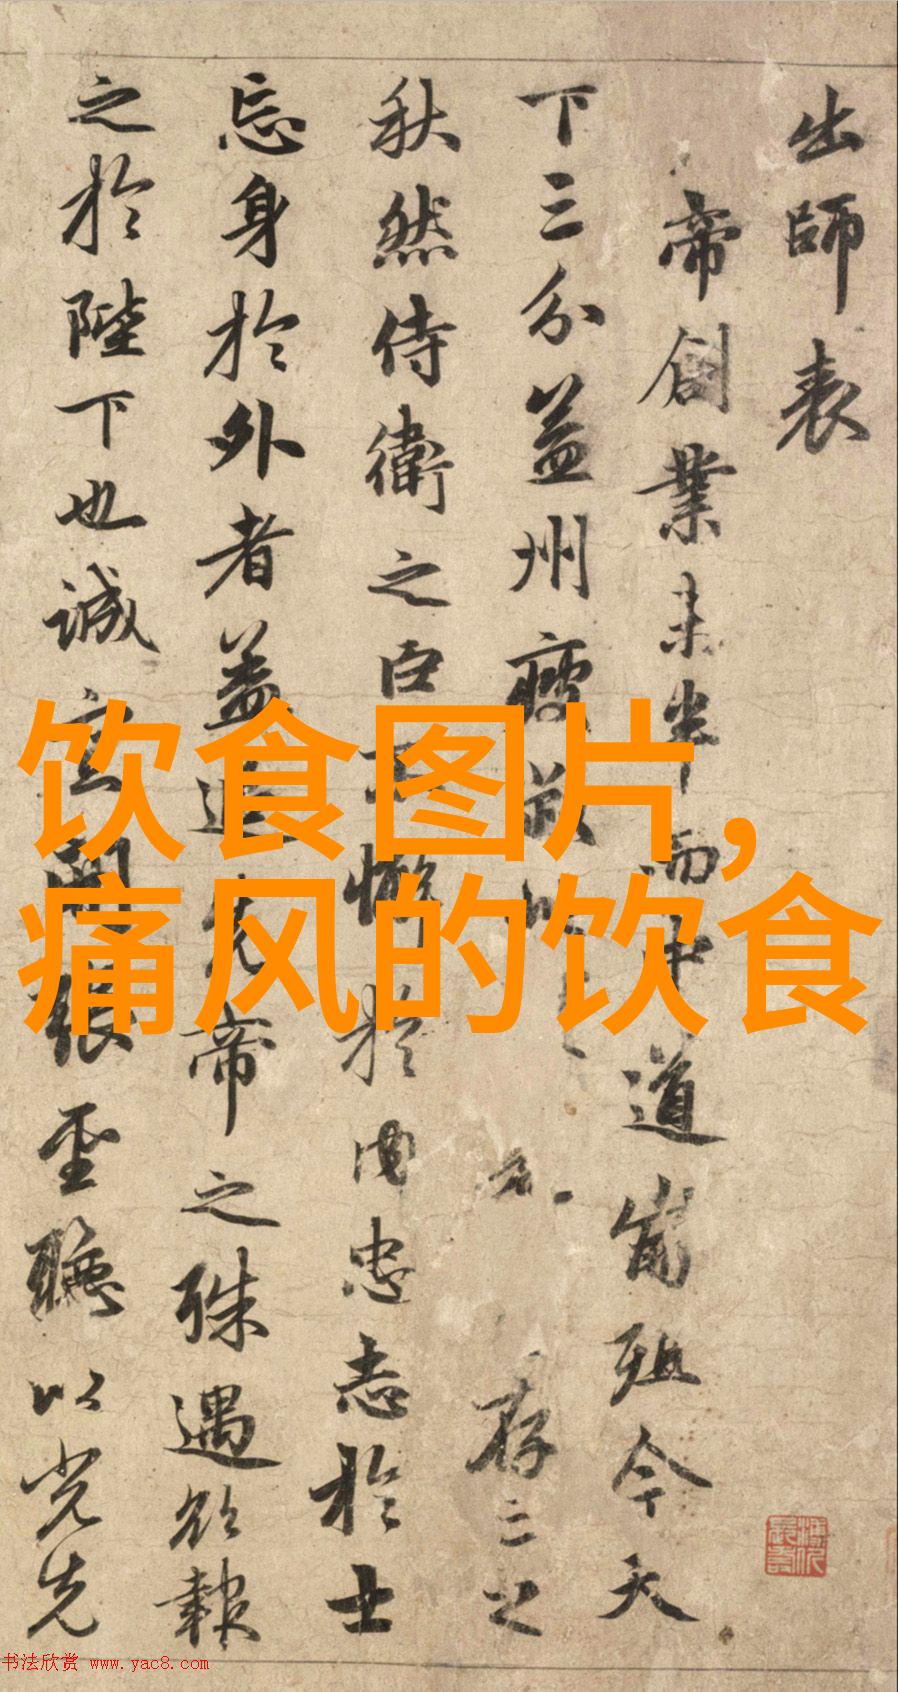 出師表
帝創業未半而中道崩殂今天
下三分益州疲敝存亡之
秋然侍衛之臣不懈於内忠志於士
忘身於外者蓋追先帝之殊遇欲報
之於陛下也誠宜開張聖聽以光先
饮食图片,
痛风的饮食
书法欣赏 www.yac8.com